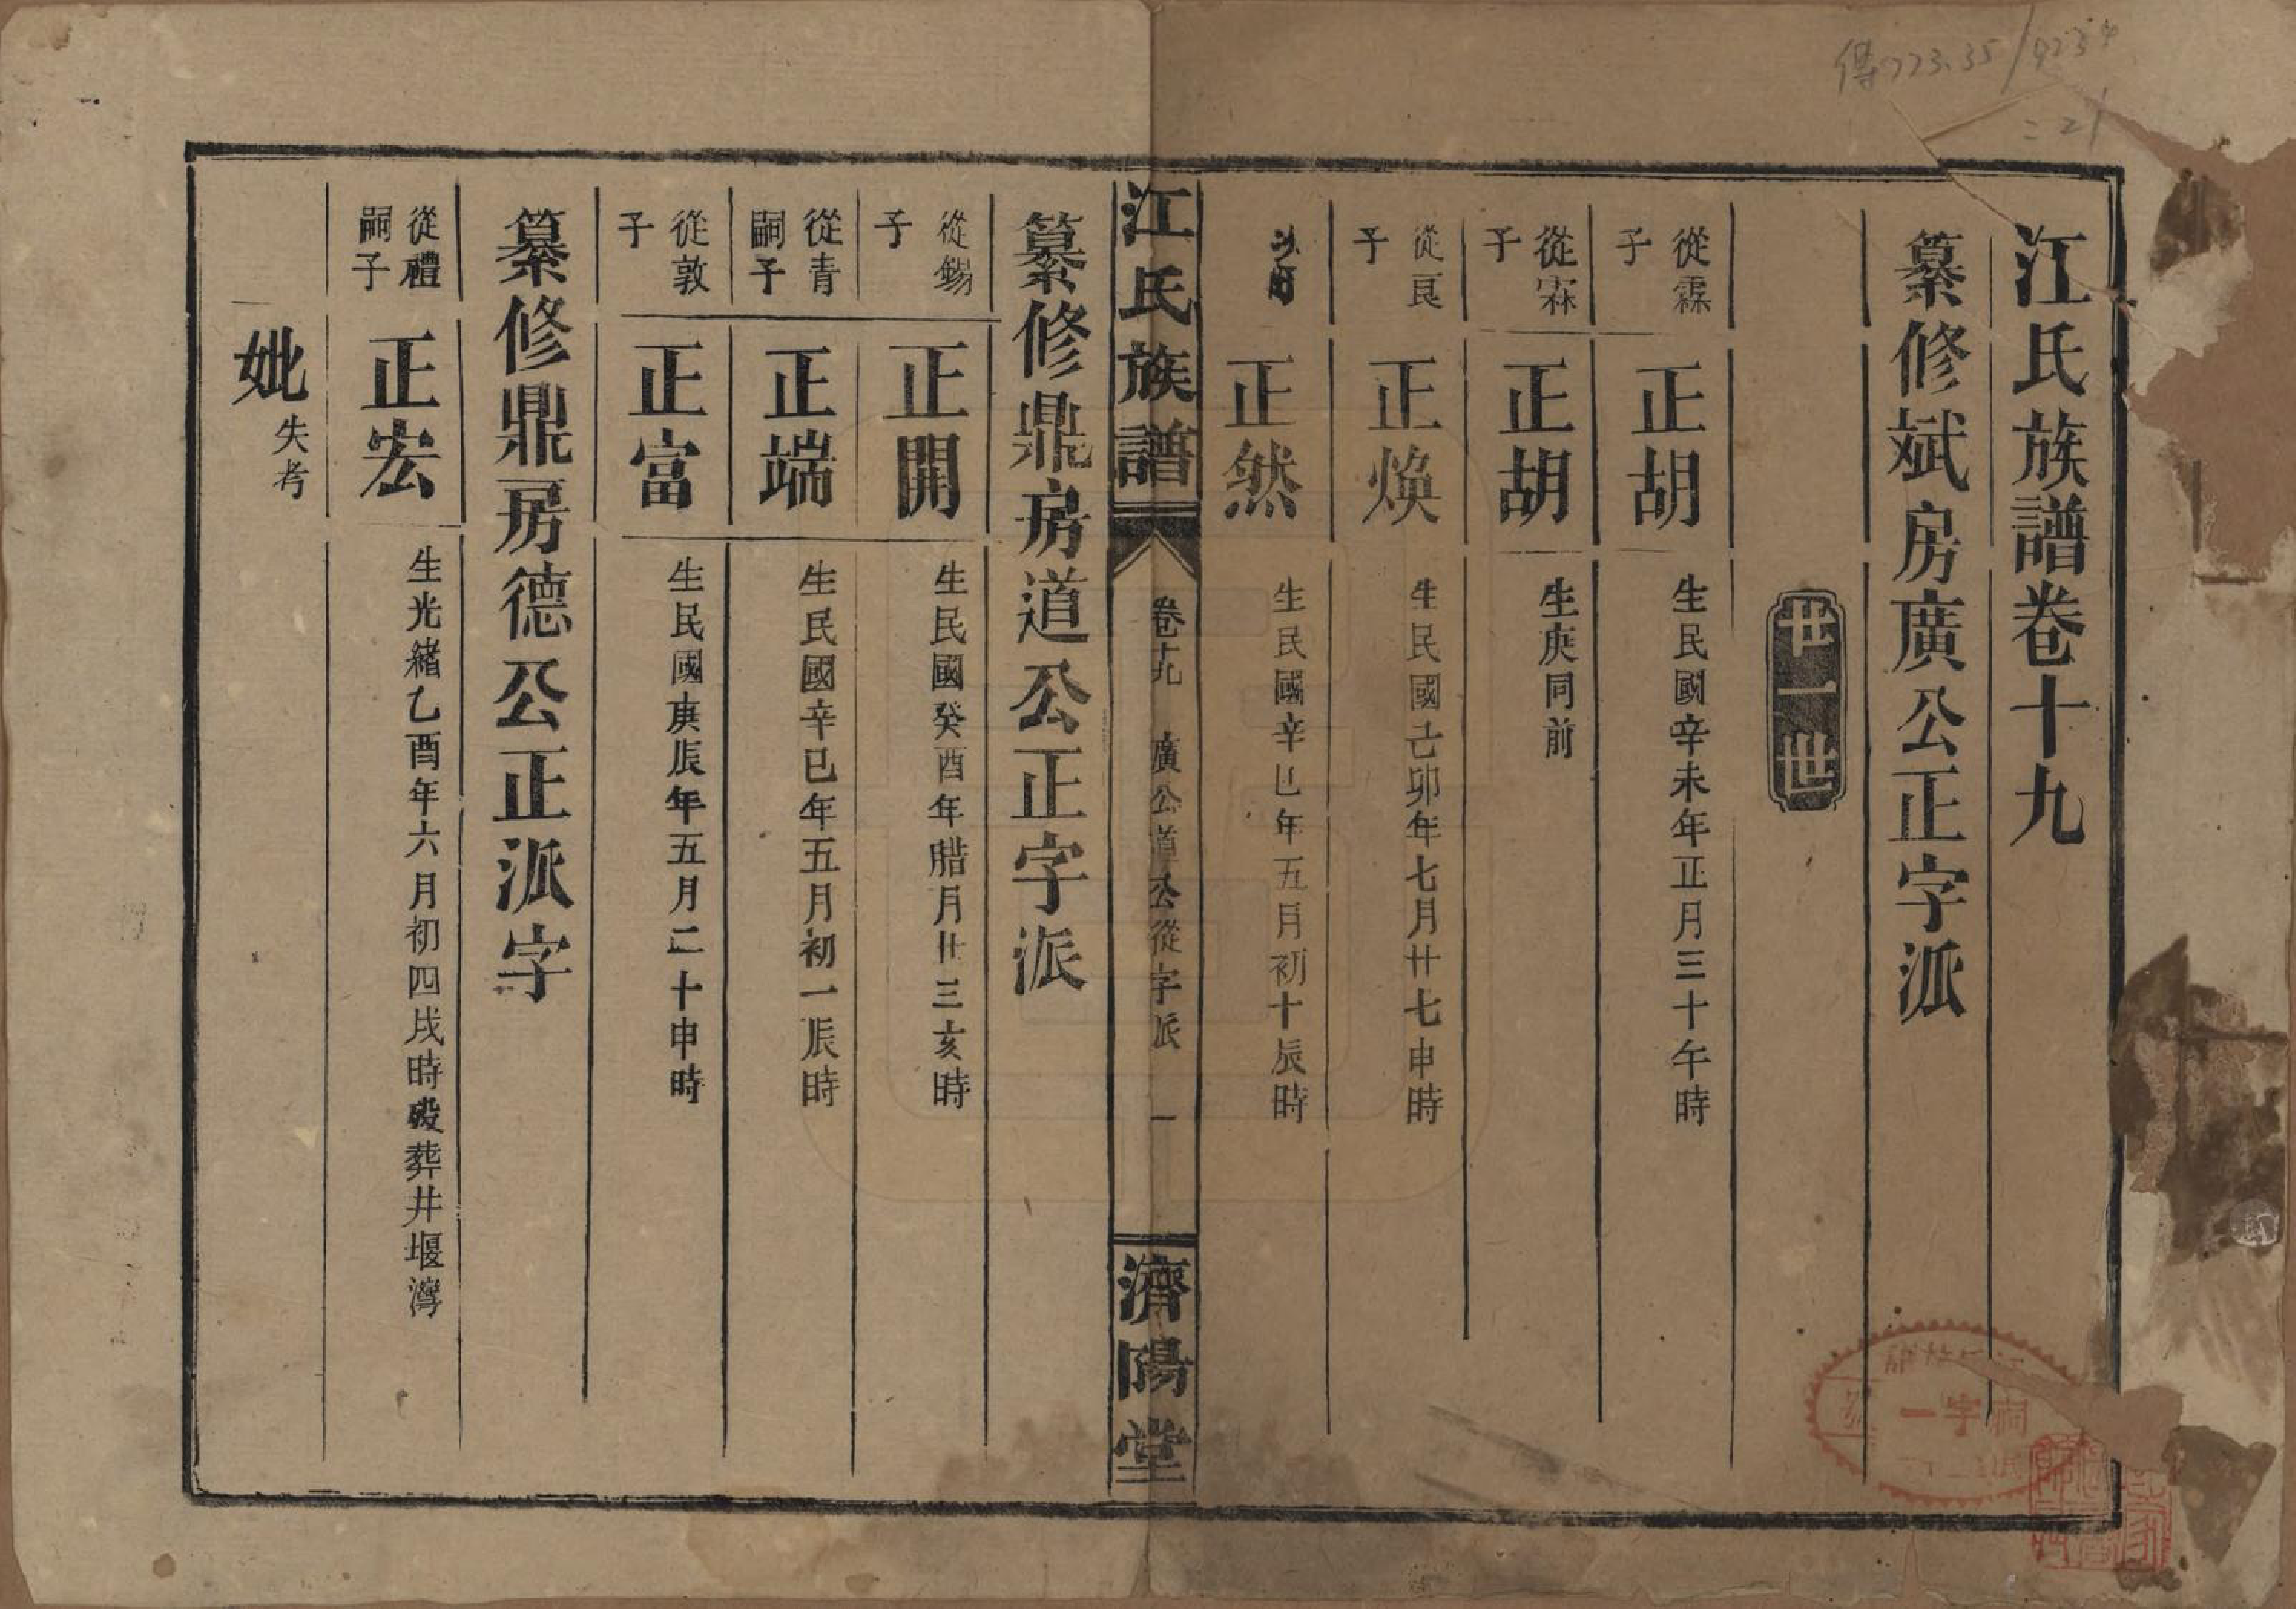 江氏族譜卷十九
纂修斌房廣公正字派
廿一世
從霖子 正胡 生民國辛未年正月三十午時
從霖子 正胡 生庚同前
從良子 正煥 生民國己卯年七月廿七申時
正然 生民國辛巳年五月初十辰時
江氏族譜 卷十九 廣公道公從字派 一 濟陽堂
纂修鼎房道公正字派
從錫子 正開 生民國癸酉年腊月廿三亥時
從青嗣子 正端 生民國辛巳年五月初一辰時
從敦子 正富 生民國庚辰年五月二十申時
纂修鼎房德公正派字
從禮嗣子 正宏 生光緒乙酉年六月初四戌時殁葬井堰灣
妣 失考